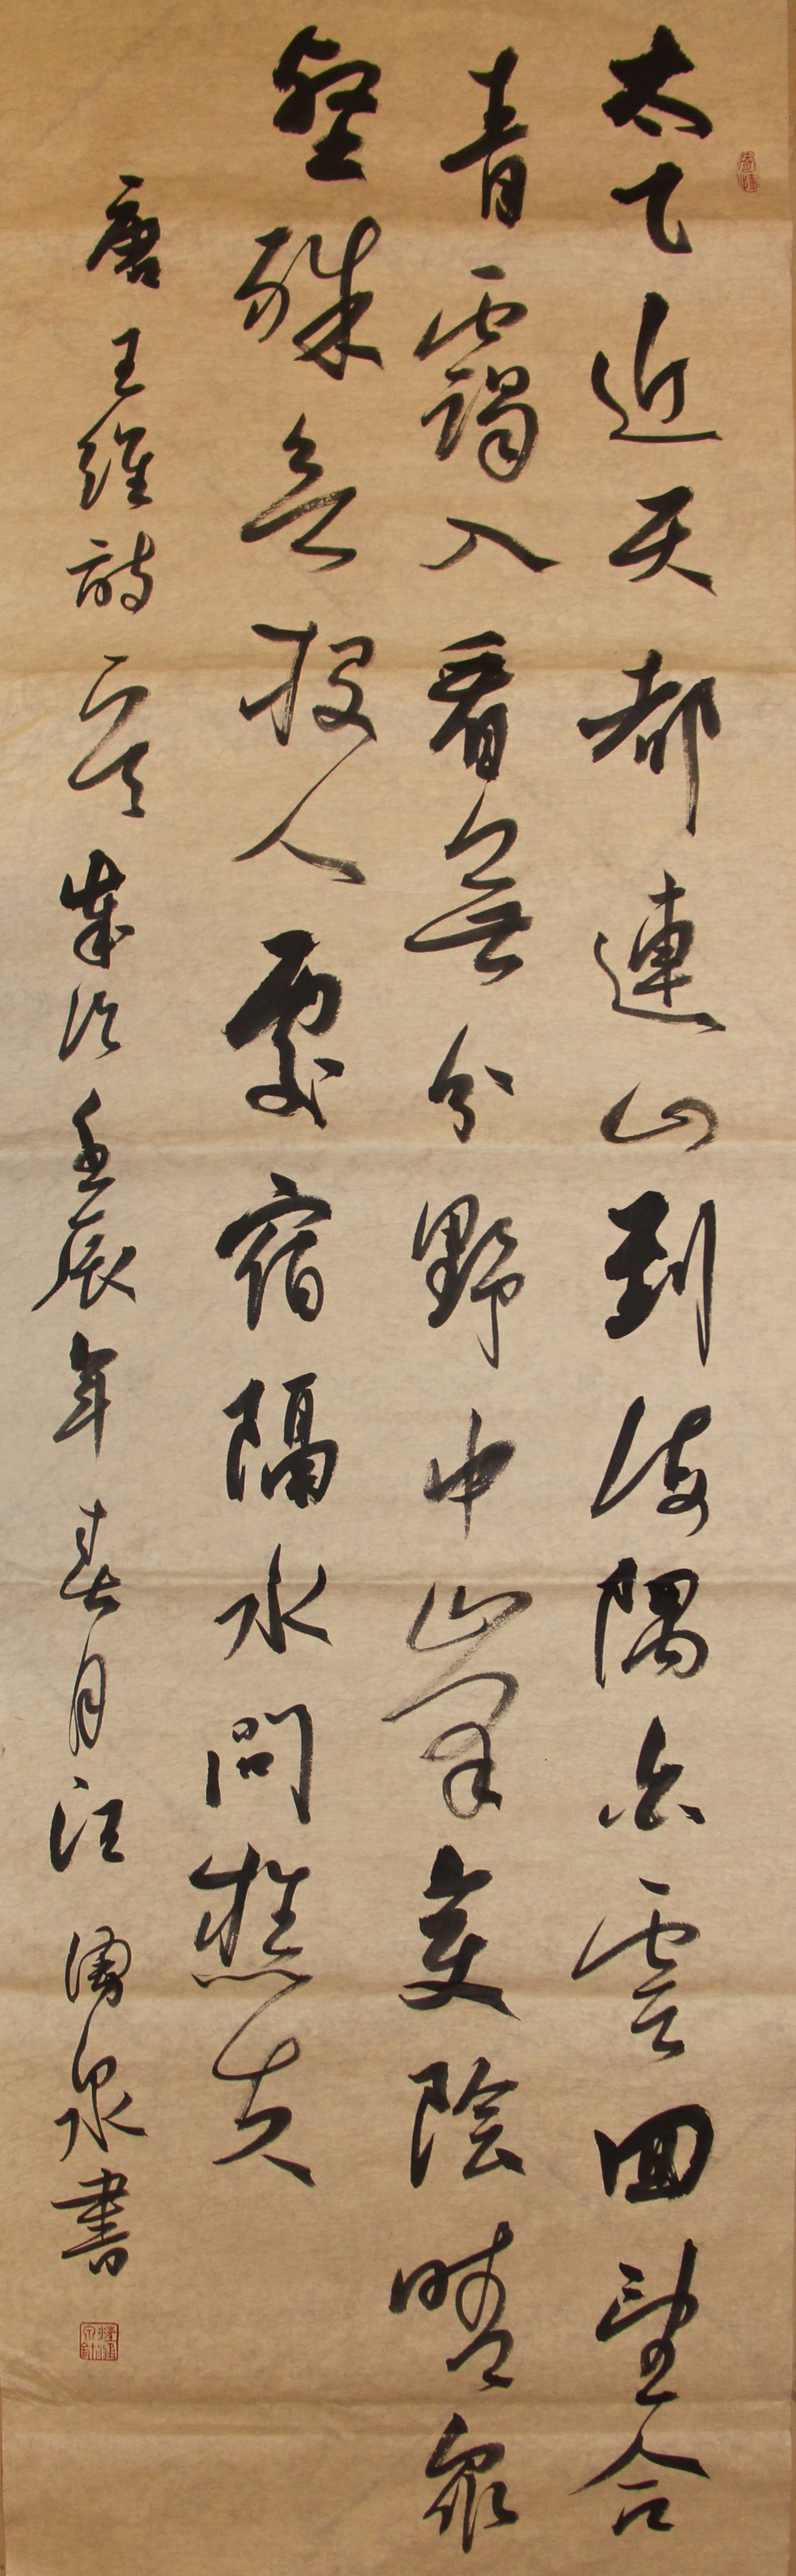 太乙近天都連山到海隅白雲回望合
青靄入看無分野中峯變陰晴眾
壑殊欲投人處宿隔水問樵夫
唐王維詩一首歲次壬辰年春月汪湧泉書